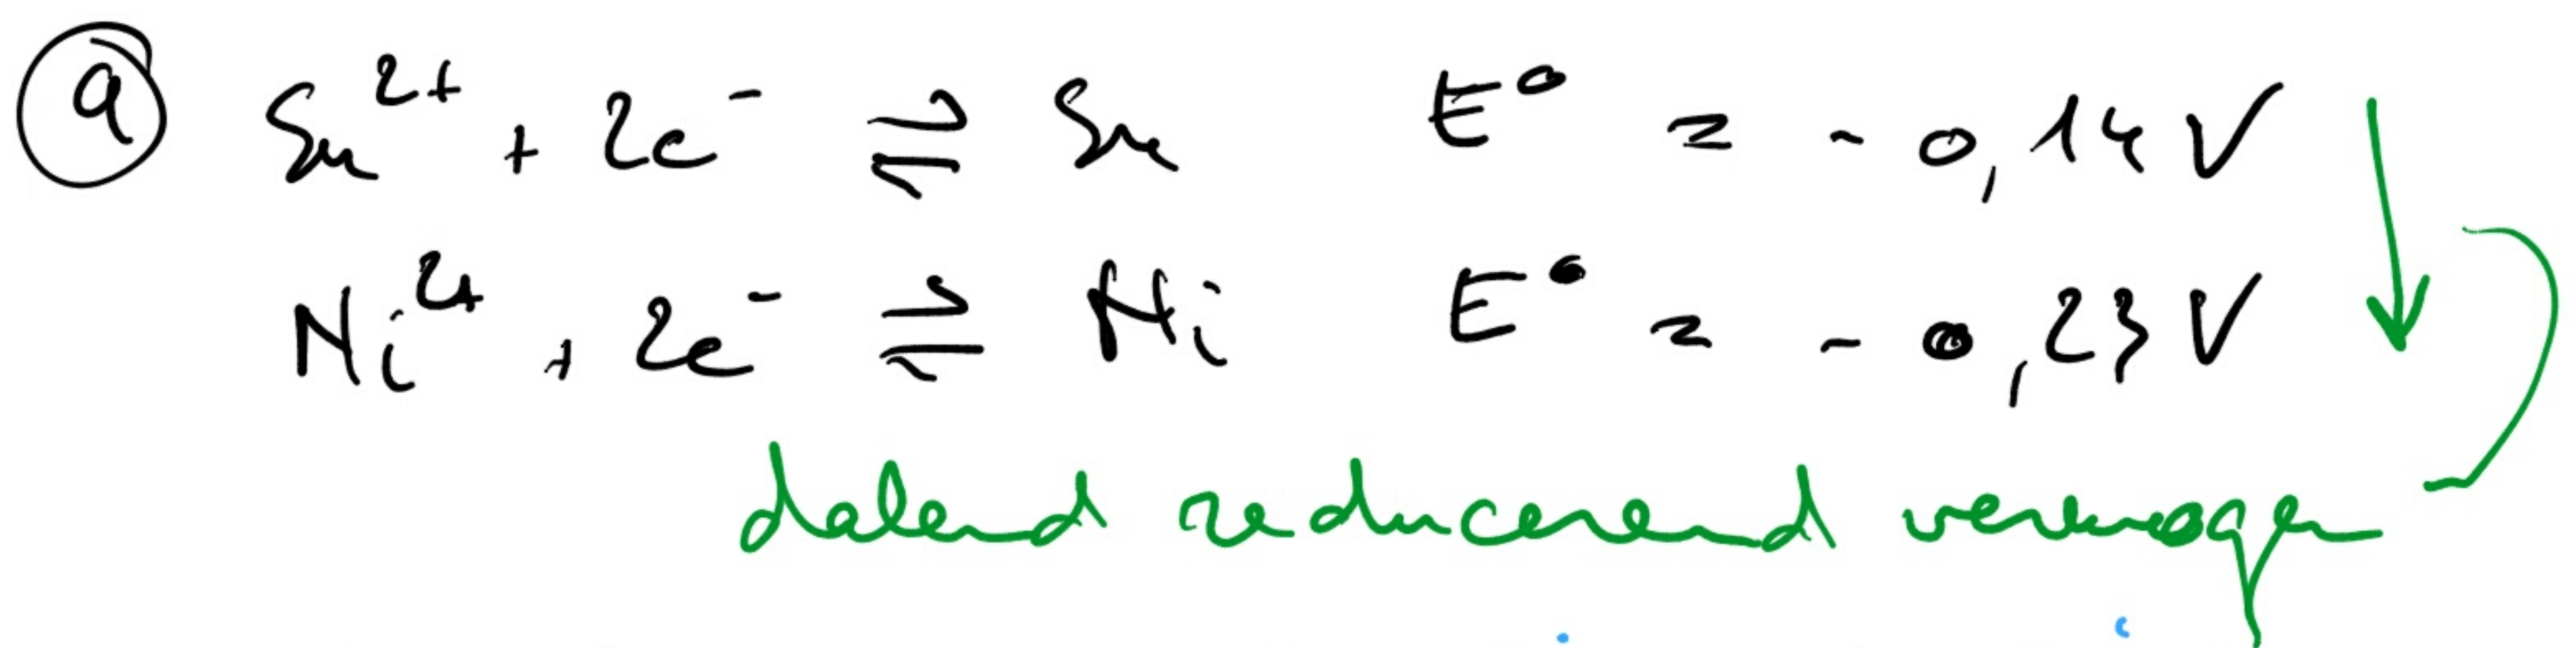 a Sn²⁺ + 2e⁻ ⇌ Sn E° = - 0,14 V
Ni²⁺ + 2e⁻ ⇌ Ni E° = - 0,23 V
dalend reducerend vermogen